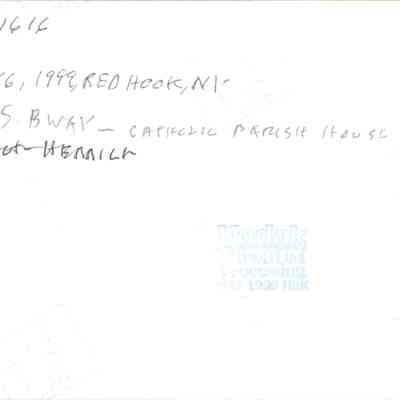 1616
6, 1999, RED HOOK, NY
S. BWAY - CATHOLIC PARISH HOUSE
HERRICK
Kodak
Processing